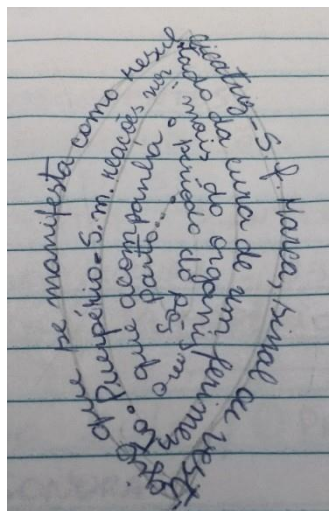 cicatriz - S. f. Marca, sinal ou vestí
gio que se manifesta como resul
tado da cura de um ferimen
to. Puerpério - S. m. reações nor
mais do organis
mo que acompanha
o período do pós
parto...